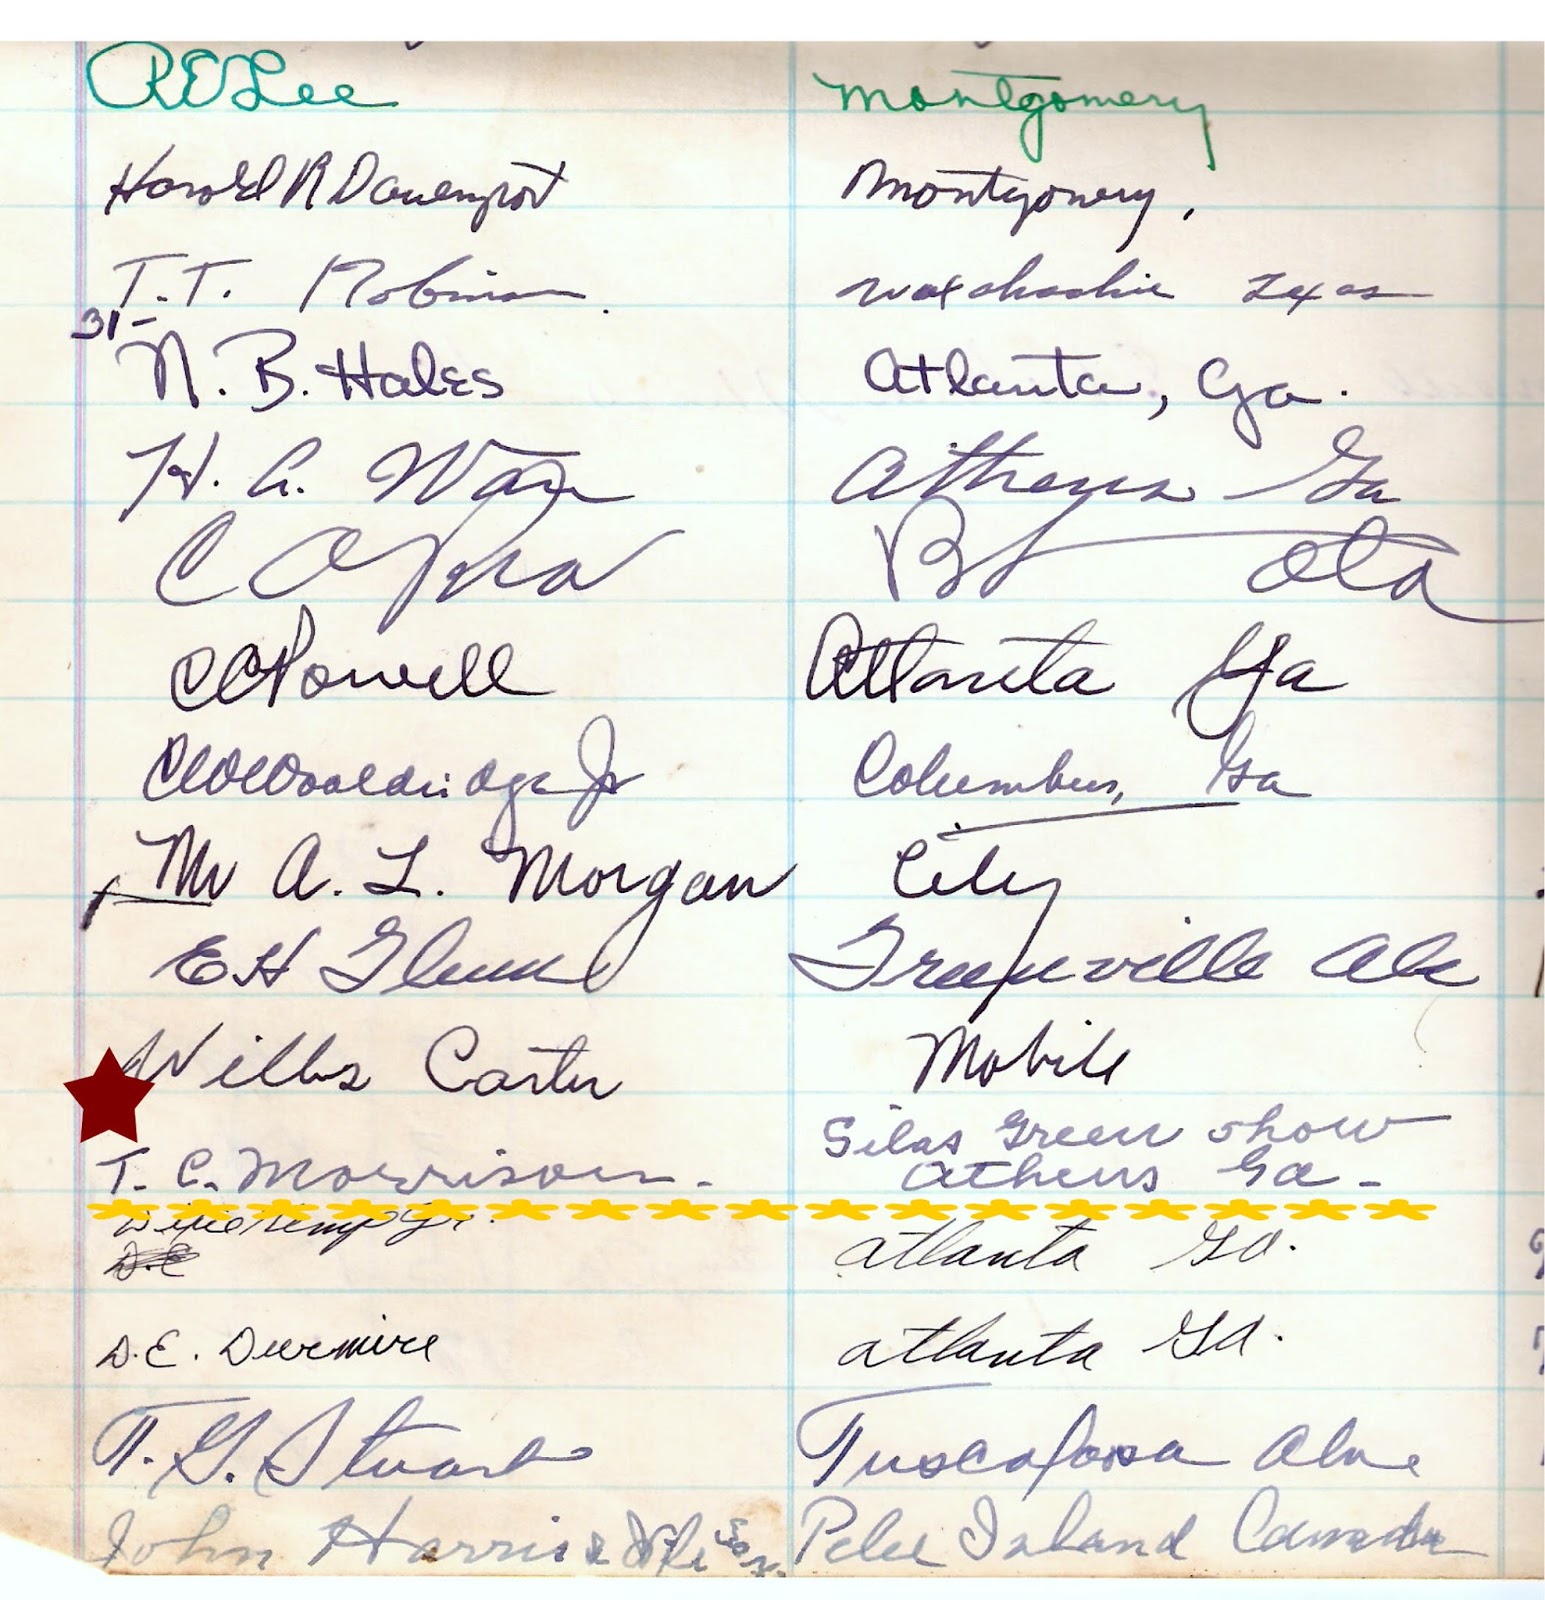 R E Lee Montgomery
Harold R Davenport Montgomery,
T. T. Robinson Waxahachie Texas
31-
N. B. Hales Atlanta, Ga.
H. A. Athens Ga
C
C C Powell Atlanta Ga
C W Wooldridge Jr Columbus, Ga
Mr A. L. Morgan City
E H Glenn Greenville Ala
Willis Carter Mobile
Silas Green Show
T. C. Morrison - Athens Ga -
Kemp Jr. Atlanta Ga.
D.E
D. E. Atlanta Ga.
T. G. Stuart Tuscaloosa Ala
John Harris & Pelee Island Canada